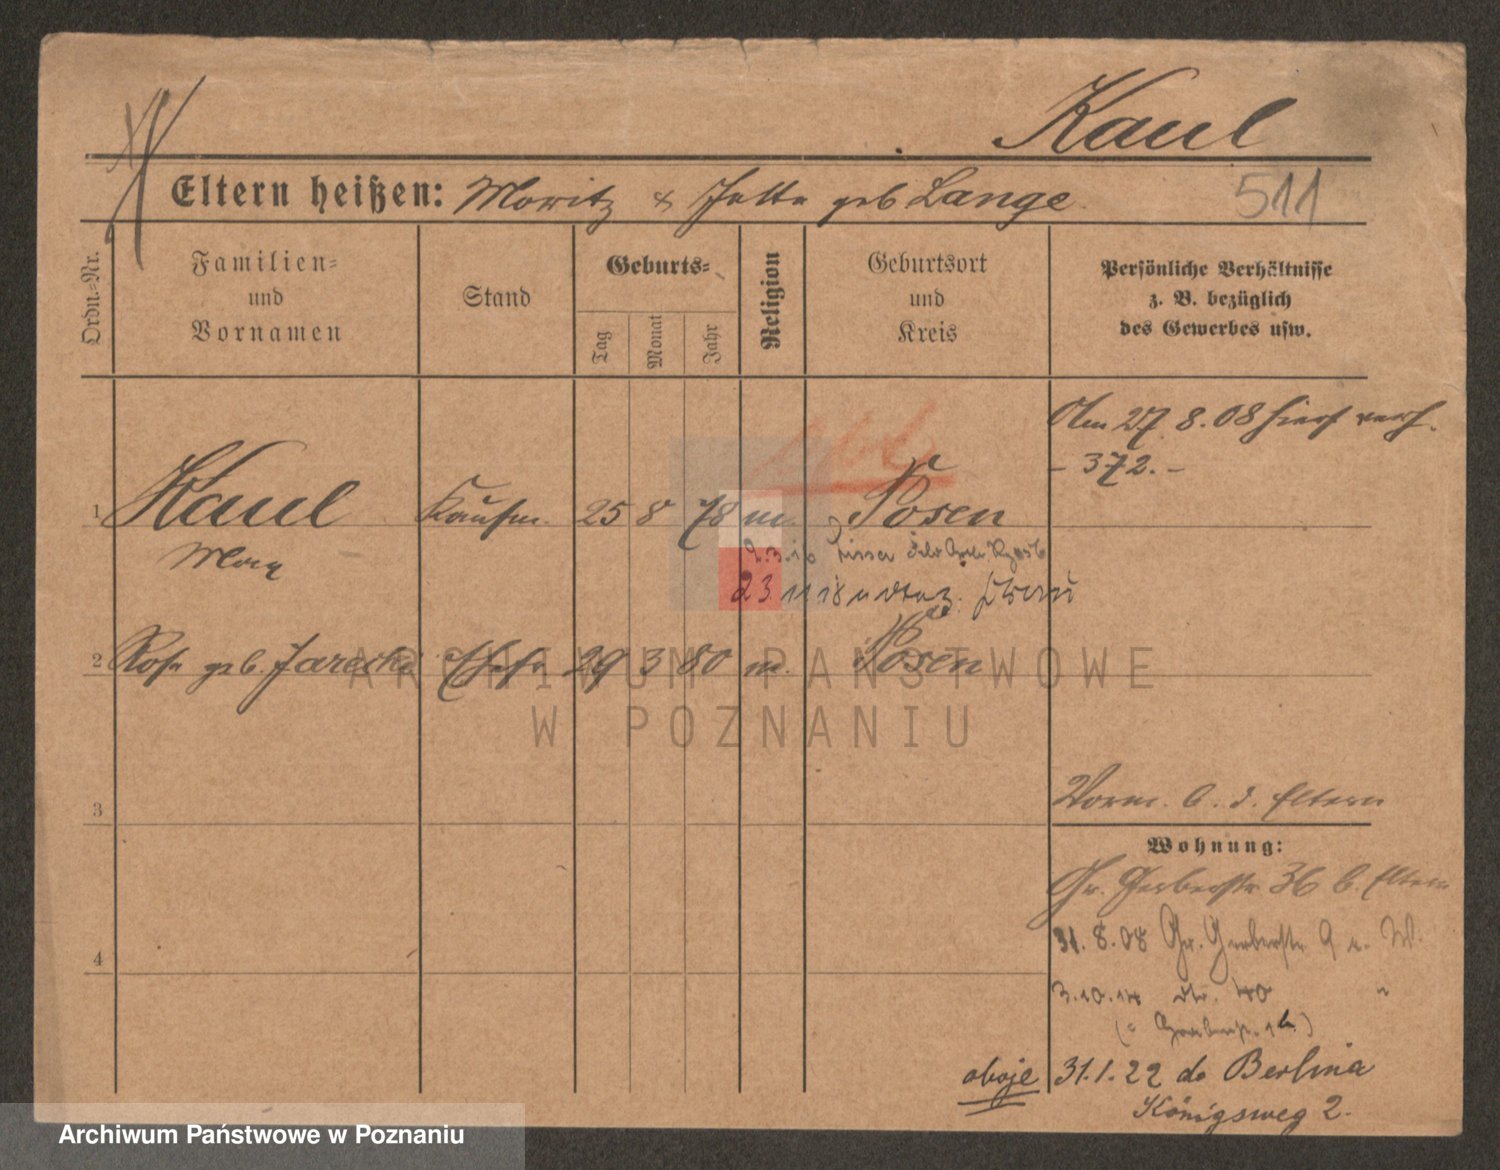 Kaul
Eltern heißen: Moritz & Jette geb Lange
511
Ordn.-Nr.
Familien-
und
Vornamen
Stand
Geburts-
Tag
Monat
Jahr
Religion
Geburtsort
und
Kreis
Persönliche Verhältnisse
z. B. bezüglich
des Gewerbes usw.
Am 27 8.08 hier verh.
- 372. -
1 Kaul Kaufm. 25 8 78 m. Posen
Max
23. 11 18
2 Rosa geb. Jarecki Ehefr 29 3 80 m. Posen
ARCHIWUM PAŃSTWOWE
W POZNANIU
3
Vorm. b. d. Eltern
Wohnung:
Gr. Gerberstr. 36 b. Eltern
31.8.08 Gr. Gerberstr. 9 W.
4
3.10.14 40 "
oboje 31.1.22 do Berlina
Königsweg 2.
Archiwum Państwowe w Poznaniu